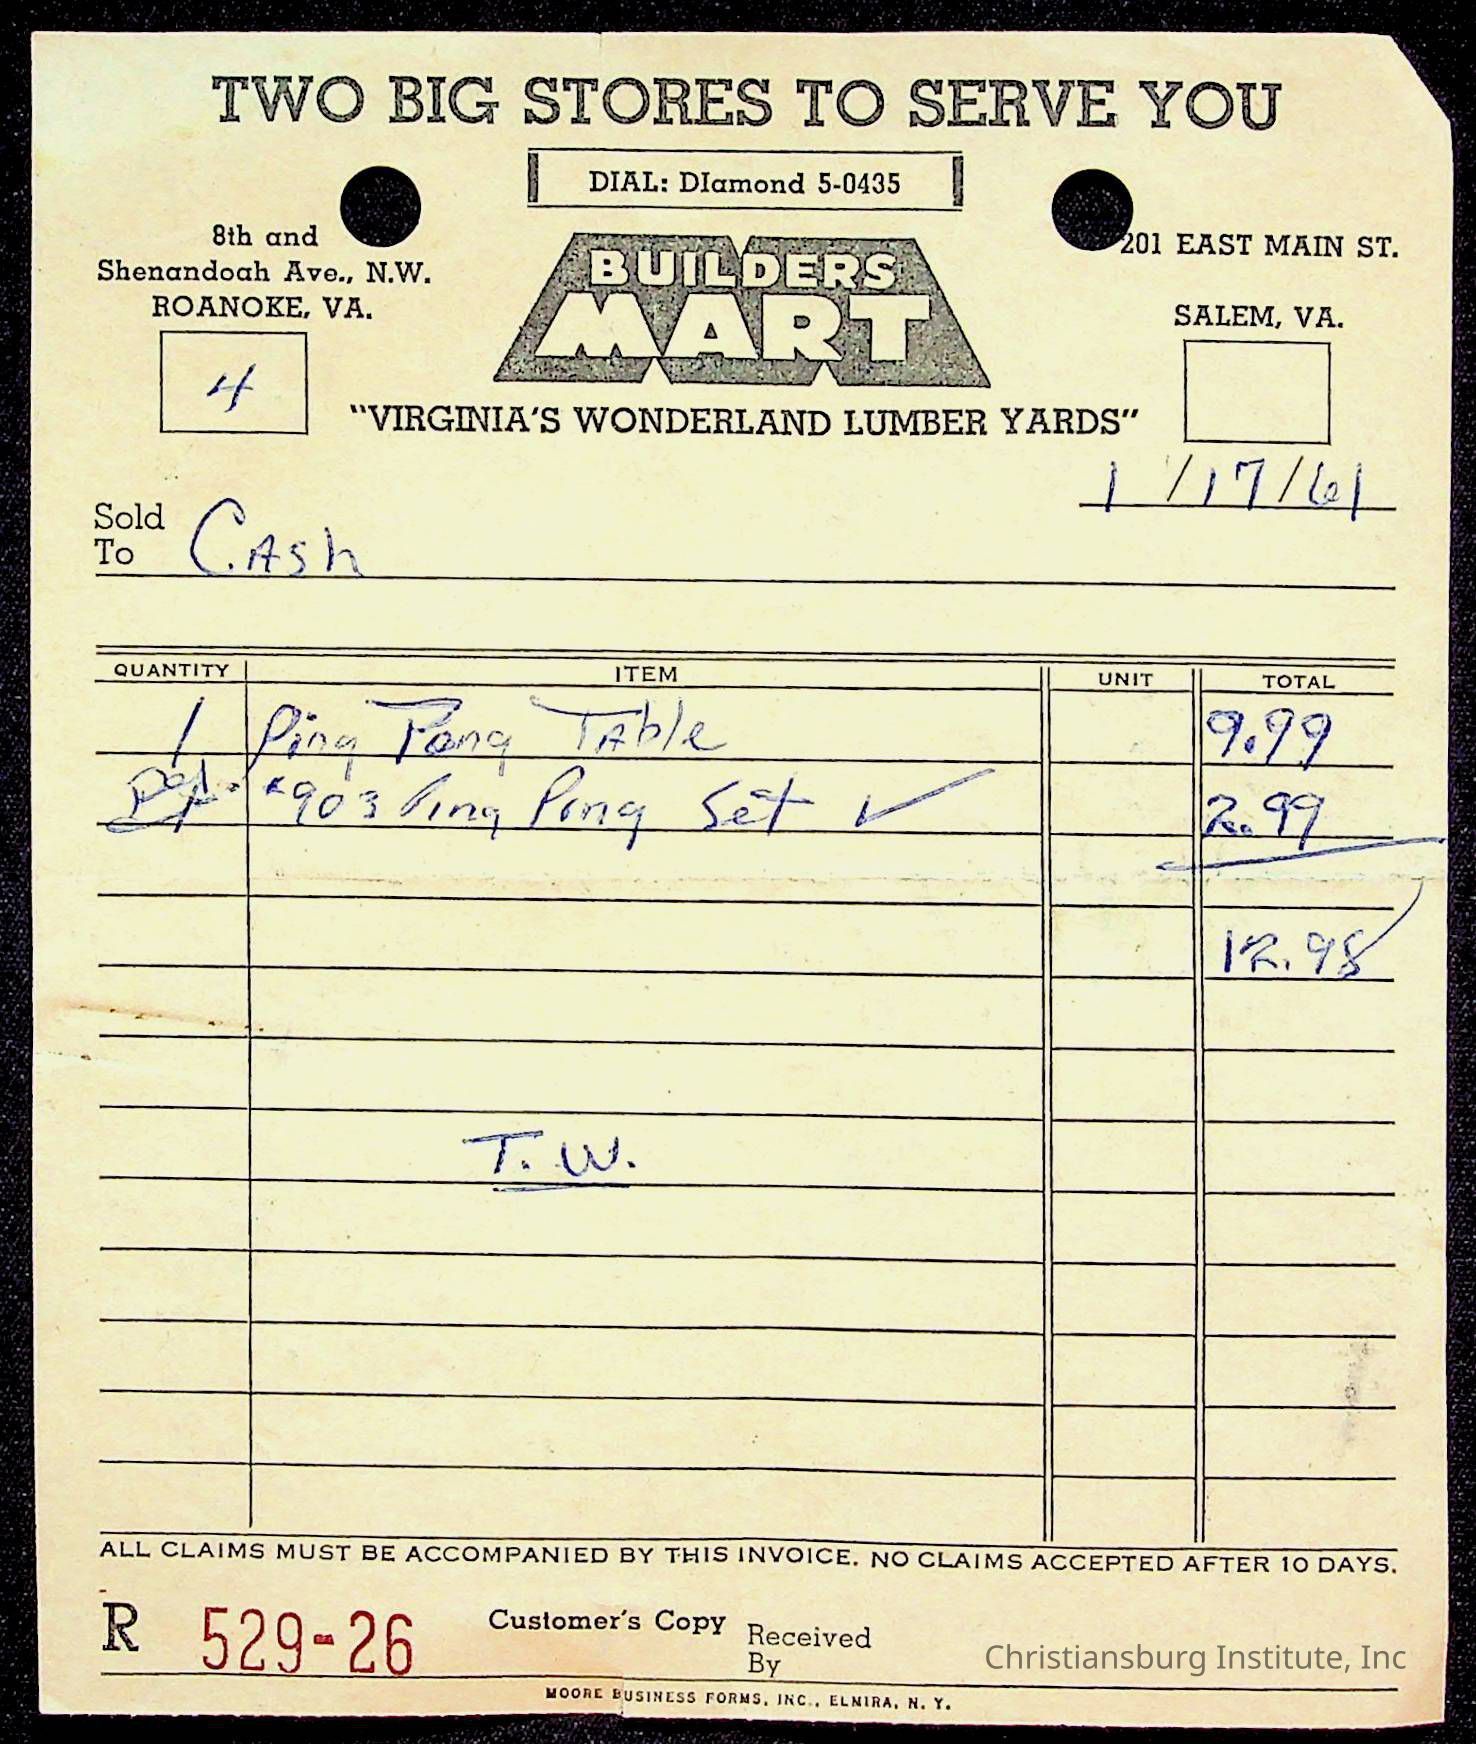 TWO BIG STORES TO SERVE YOU
DIAL: DIamond 5-0435
8th and
Shenandoah Ave., N.W.
ROANOKE, VA.
4
BUILDERS
MART
201 EAST MAIN ST.
SALEM, VA.
"VIRGINIA'S WONDERLAND LUMBER YARDS"
1/17/61
Sold
To Cash
QUANTITY ITEM UNIT TOTAL
1 Ping Pong Table 9.99
#903 Ping Pong Set ✓ 2.99
12.98
T. W.
ALL CLAIMS MUST BE ACCOMPANIED BY THIS INVOICE. NO CLAIMS ACCEPTED AFTER 10 DAYS.
R 529-26 Customer's Copy Received
By
Christiansburg Institute, Inc
MOORE BUSINESS FORMS, INC., ELMIRA, N. Y.